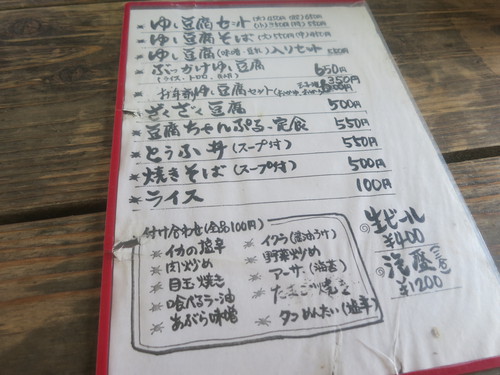 ゆし豆腐セット
ゆし豆腐そば
ゆし豆腐(味噌・)入りセット
ぶっかけゆし豆腐 650円
お年寄ゆし豆腐セット 350円
ざくざく豆腐 500円
豆腐ちゃんぷる定食 550円
とうふ丼(スープ付) 550円
焼きそば(スープ付) 500円
ライス 100円
付け合わせ(全品100円)
イカの塩辛
肉炒め
目玉焼き
喰べるラー油
あぶら味噌
イクラ(醤油づけ)
野菜炒め
アーサ(海苔)
たまご焼き
タコめんたい(塩辛)
生ビール
¥400
泡盛(三合)
¥1200